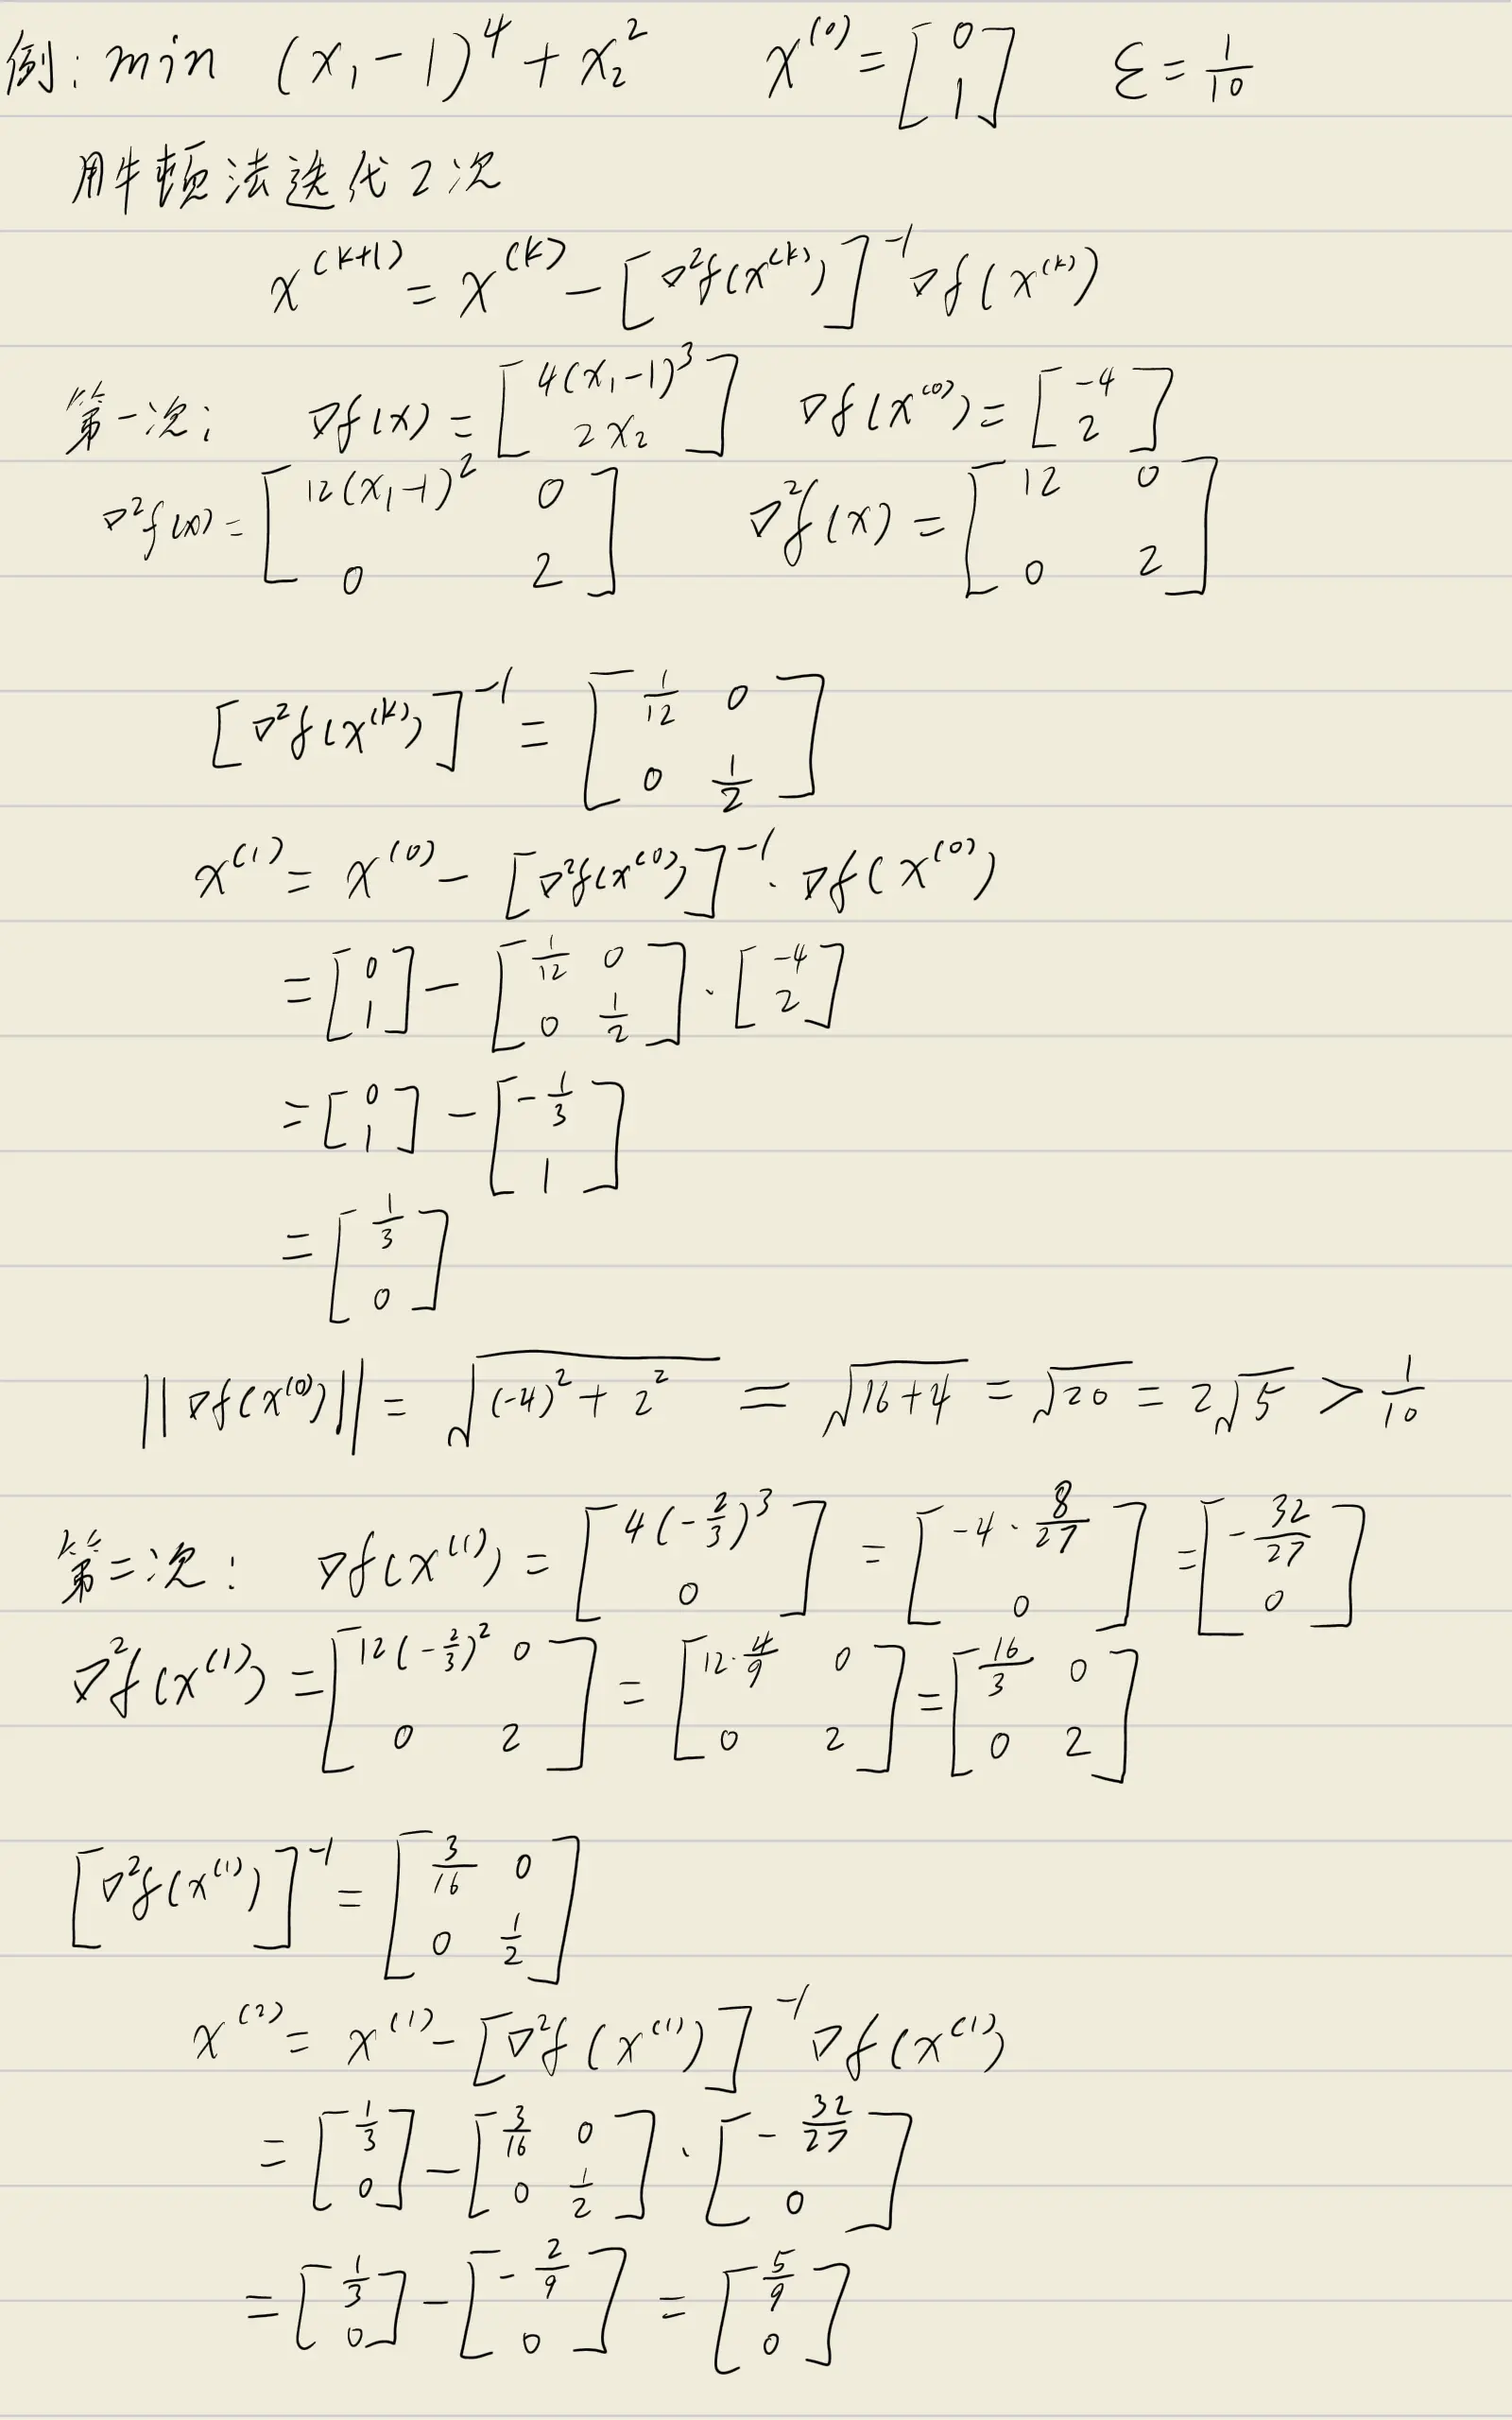 例: min (x₁-1)⁴ + x₂² x⁽⁰⁾ = [0; 1] ε = 1/10
用牛顿法迭代2次
x⁽ᵏ⁺¹⁾ = x⁽ᵏ⁾ - [∇²f(x⁽ᵏ⁾)]⁻¹ ∇f(x⁽ᵏ⁾)
第一次: ∇f(x) = [4(x₁-1)³; 2x₂] ∇f(x⁽⁰⁾) = [-4; 2]
∇²f(x) = [12(x₁-1)² 0; 0 2] ∇²f(x) = [12 0; 0 2]
[∇²f(x⁽ᵏ⁾)]⁻¹ = [1/12 0; 0 1/2]
x⁽¹⁾ = x⁽⁰⁾ - [∇²f(x⁽⁰⁾)]⁻¹ · ∇f(x⁽⁰⁾)
= [0; 1] - [1/12 0; 0 1/2] · [-4; 2]
= [0; 1] - [-1/3; 1]
= [1/3; 0]
||∇f(x⁽⁰⁾)|| = √((-4)² + 2²) = √(16+4) = √20 = 2√5 > 1/10
第二次: ∇f(x⁽¹⁾) = [4(-2/3)³; 0] = [-4 · 8/27; 0] = [-32/27; 0]
∇²f(x⁽¹⁾) = [12(-2/3)² 0; 0 2] = [12 · 4/9 0; 0 2] = [16/3 0; 0 2]
[∇²f(x⁽¹⁾)]⁻¹ = [3/16 0; 0 1/2]
x⁽²⁾ = x⁽¹⁾ - [∇²f(x⁽¹⁾)]⁻¹ ∇f(x⁽¹⁾)
= [1/3; 0] - [3/16 0; 0 1/2] · [-32/27; 0]
= [1/3; 0] - [-2/9; 0] = [5/9; 0]